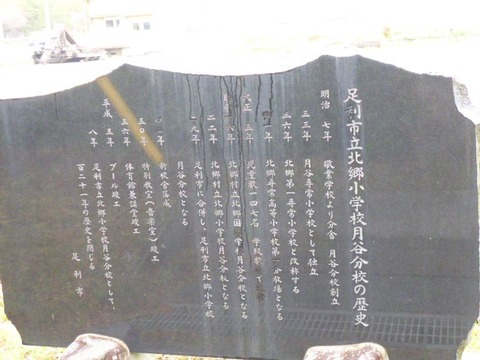 足利市立北郷小学校月谷分校の歴史
明治 七年 敬業学校より分舎 月谷分校創立
二三年 月谷尋常小学校として独立
二六年 北郷第一尋常小学校と改称する
北郷尋常高等小学校第一分教場となる
大正 五年 児童数一四七名
一六年 北郷村立北郷国 学校月谷分校となる
二二年 北郷村立北郷小学校月谷分校となる
二九年 足利市に合併し、足利市立北郷小学校
月谷分校となる
新校舎落成
五〇年 特別教室(音楽室)竣工
五六年 体育館兼講堂竣工
平成 五年 プール竣工
八年 足利市立北郷小学校月谷分校として、
百二十一年の歴史を閉じる
足利市